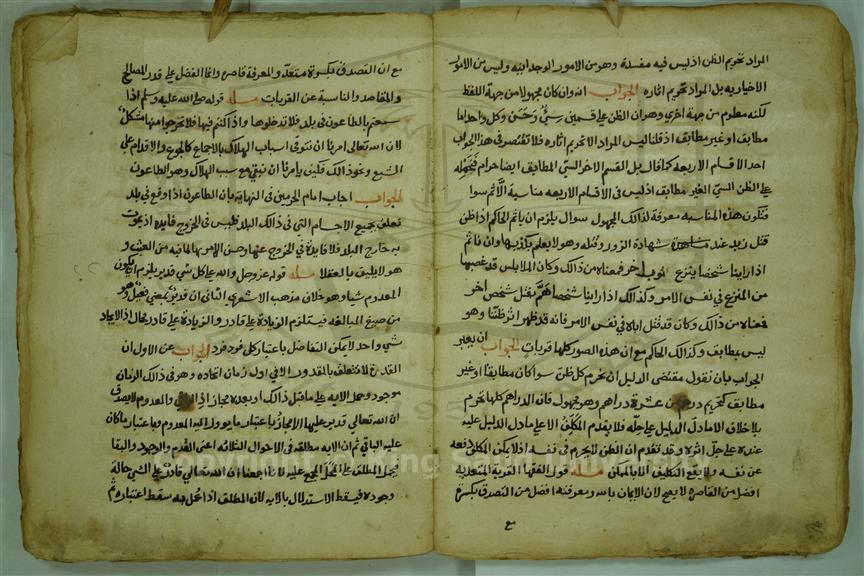 المراد تحريم الظن اذ ليس فيه مفسدة وهو من الامور الوجدانيه وليس من الامور
الاختياريه بل المراد تحريم اثاره الجواب انه وان كان مجهولا من جهة اللفظ
لكنه معلوم من جهة اخرى وهو ان الظن على قسمين سيئ وحسن وكل واحد اما
مطابق او غير مطابق اذ قلنا ليس المراد الا تحريم اثاره فلا تقتصر في هذا الجواب
احد الاقسام الاربعه كما قال بل القسم الاخر السيئ المطابق ايضا حرام فنحمله
على الظن السيئ الغير مطابق اذ ليس في الاقسام الاربعه مناسبة الاثم سوا
فتكون هذه المناسبه معرفة لذالك المجهول سوال يلزم ان ياثم الحاكم اذا ظن
قتل زيد عند مشاهدة شهادة الزور وقتله وهو لا يعلم بكذبها وان ناثم
اذا راينا شخصا ينزع ثوب اخر فمنعناه من ذالك وكان الملابس قد غصبها
من المنزع في نفس الامر وكذالك اذا راينا شخصا هم بقتل شخص اخر
فمنعناه من ذالك وكان قد قتل اباه في نفس الامر فانه قد ظهر اثر ظننا وهو
ليس بمطابق وكذالك الحاكم مع ان هذه الصور كلها قربات الجواب ان يعبر
الجواب بان نقول مقتضى الدليل ان نحرم كل ظن سوا كان مطابقا او غير
مطابق كتحريم درهم من عشرة دراهم وهو مجهول فان الدراهم كلها تحرم
بلا خلاف الا ما دل الدليل على حله فلا يقدم المكلف الا على ما دل الدليل عليه
عنده على حل اثره وقد تقدم ان الظن لا يحرم في نفسه اذ لا يمكن المكلف دفعه
عن نفسه ولا يقع التكليف الا بالممكن مسله قول الفقها القربة المتعدية
افضل من القاصره لا يصح لان الايمان بالله ومعرفته افضل من التصدق بكسرة
مع
مع ان التصدق بكسرة متعد والمعرفة قاصره وانما الفضل على قدر المصالح
والمقاصد والناسبة عن القربات مسله قوله صلى الله عليه وسلم اذا
سمعتم بالطاعون في بلد فلا تدخلوها واذا كنتم فيها فلا تخرجوا منها مشكل
لان الله تعالى امرنا ان نتوقى اسباب الهلاك بالاجماع كالجوع والاقدام على
السبع ونحو ذالك فكيف يامرنا ان نبقى مع سبب الهلاك وهو الطاعون
الجواب اجاب امام الحرمين في النهايه بان الطاعون اذا وقع في بلد
تعلق بجميع الاجسام التي في ذالك البلد فليس في الخروج فايده اذ يموت
به خارج البلد فلا فايدة في الخروج عنها وحسن الامر بها لما فيه من العتب و
هو لا يليق بالعقلا مسله قوله عز وجل والله على كل شي قدير يلزم ان يكون
المعدوم شيا وهو خلاف مذهب الاشعري الثاني ان قدير بمعنى فعيل وهو
من صيغ المبالغه فيستلزم الزيادة على قادر والزيادة على قادر محال اذ الايجاد
شي واحد لا يمكن التفاضل باعتبار كل فرد فرد الجواب عن الاول ان
القدرة لا تتعلق بالمقدور الا في اول زمان اتحاده وهو في ذالك الزمان
موجود وحمل الايه على ما قبل ذالك او بعده مجاز اذ والمعدوم لا يصدق
ان الله تعالى قدير عليهما الا مجازا باعتبار ما يوول اليه المعدوم وباعتبار ما كان
عليه الباقي ثم ان الايه مطلقه في الاحوال الثلاثه اعني العدم والوجود والبقا
فيحمل المطلق على المحمل المجمع عليه لانا اجمعنا ان الله تعالى قادر على الشي حالة
وجوده فيسقط الاستدلال بالايه لان المطلق اذا عمل به سقط اعتباره ثم